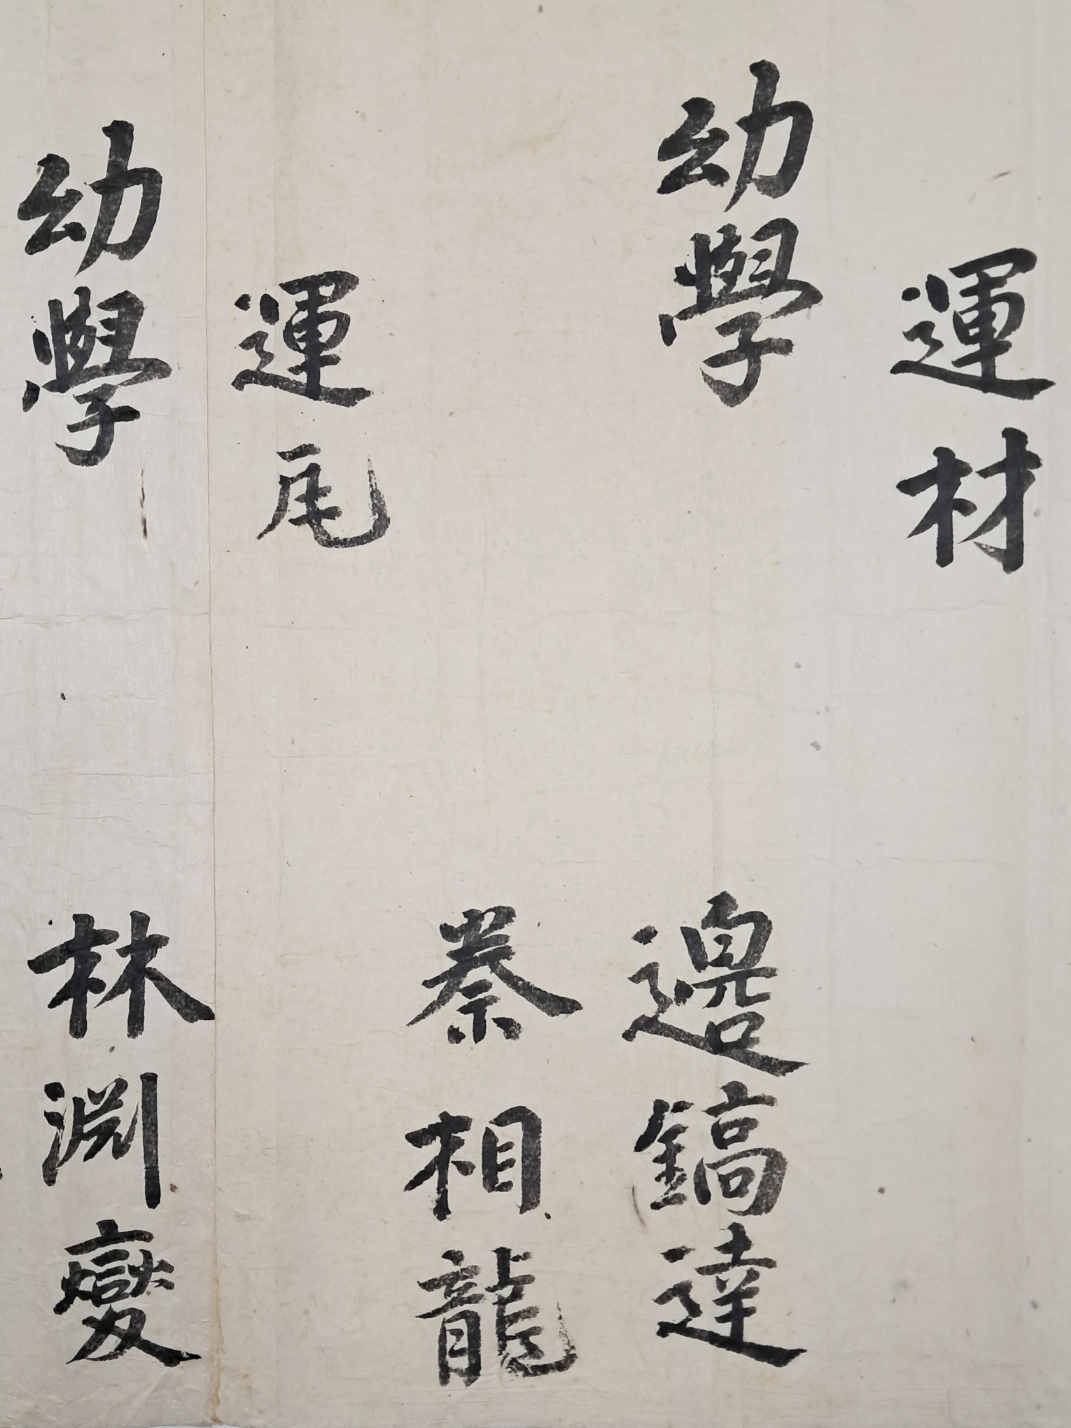 運材
幼學 邊鎬達
蔡相龍
運瓦
幼學 林淵燮